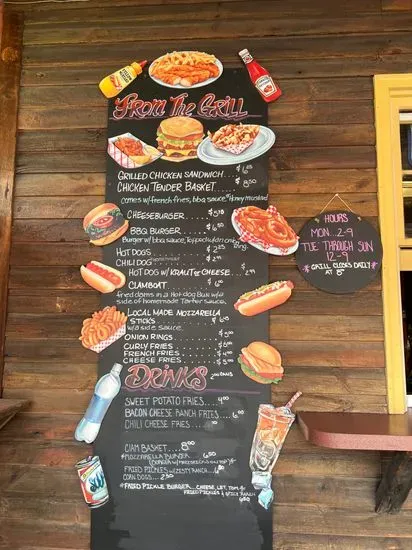 From The Grill
GRILLED CHICKEN SANDWICH
CHICKEN TENDER BASKET . . . 8.50
comes w/french fries, bbq sauce, *Honey mustard
CHEESEBURGER
BBQ BURGER
Burger w/bbq sauce,
Ring
HOT DOGS . . . 2.25
CHILI DOG
HOT DOG W/ KRAUT OR CHEESE
CLAMBOAT
fried clams in a Hot dog Bun w/a
side of homemade Tarter Sauce.
LOCAL MADE MOZZARELLA
STICKS
w/a side sauce
ONION RINGS
CURLY FRIES
FRENCH FRIES
CHEESE FRIES
DRINKS
SWEET POTATO FRIES . . . 4.00
BACON CHEESE RANCH FRIES . . . 6.00
CHILI CHEESE FRIES
CLAM BASKET . . . 8.00
*MOZZARELLA BURGER
FRIED PICKLES W/ZESTY RANCH
CORN DOGS
*FRIED PICKLE BURGER . . . CHEESE, LET, TOM, &
FRIED PICKLES & SPICY RANCH
HOURS
MON... 2-9
TUE THROUGH SUN
12-9
*GRILL CLOSES DAILY*
AT 8